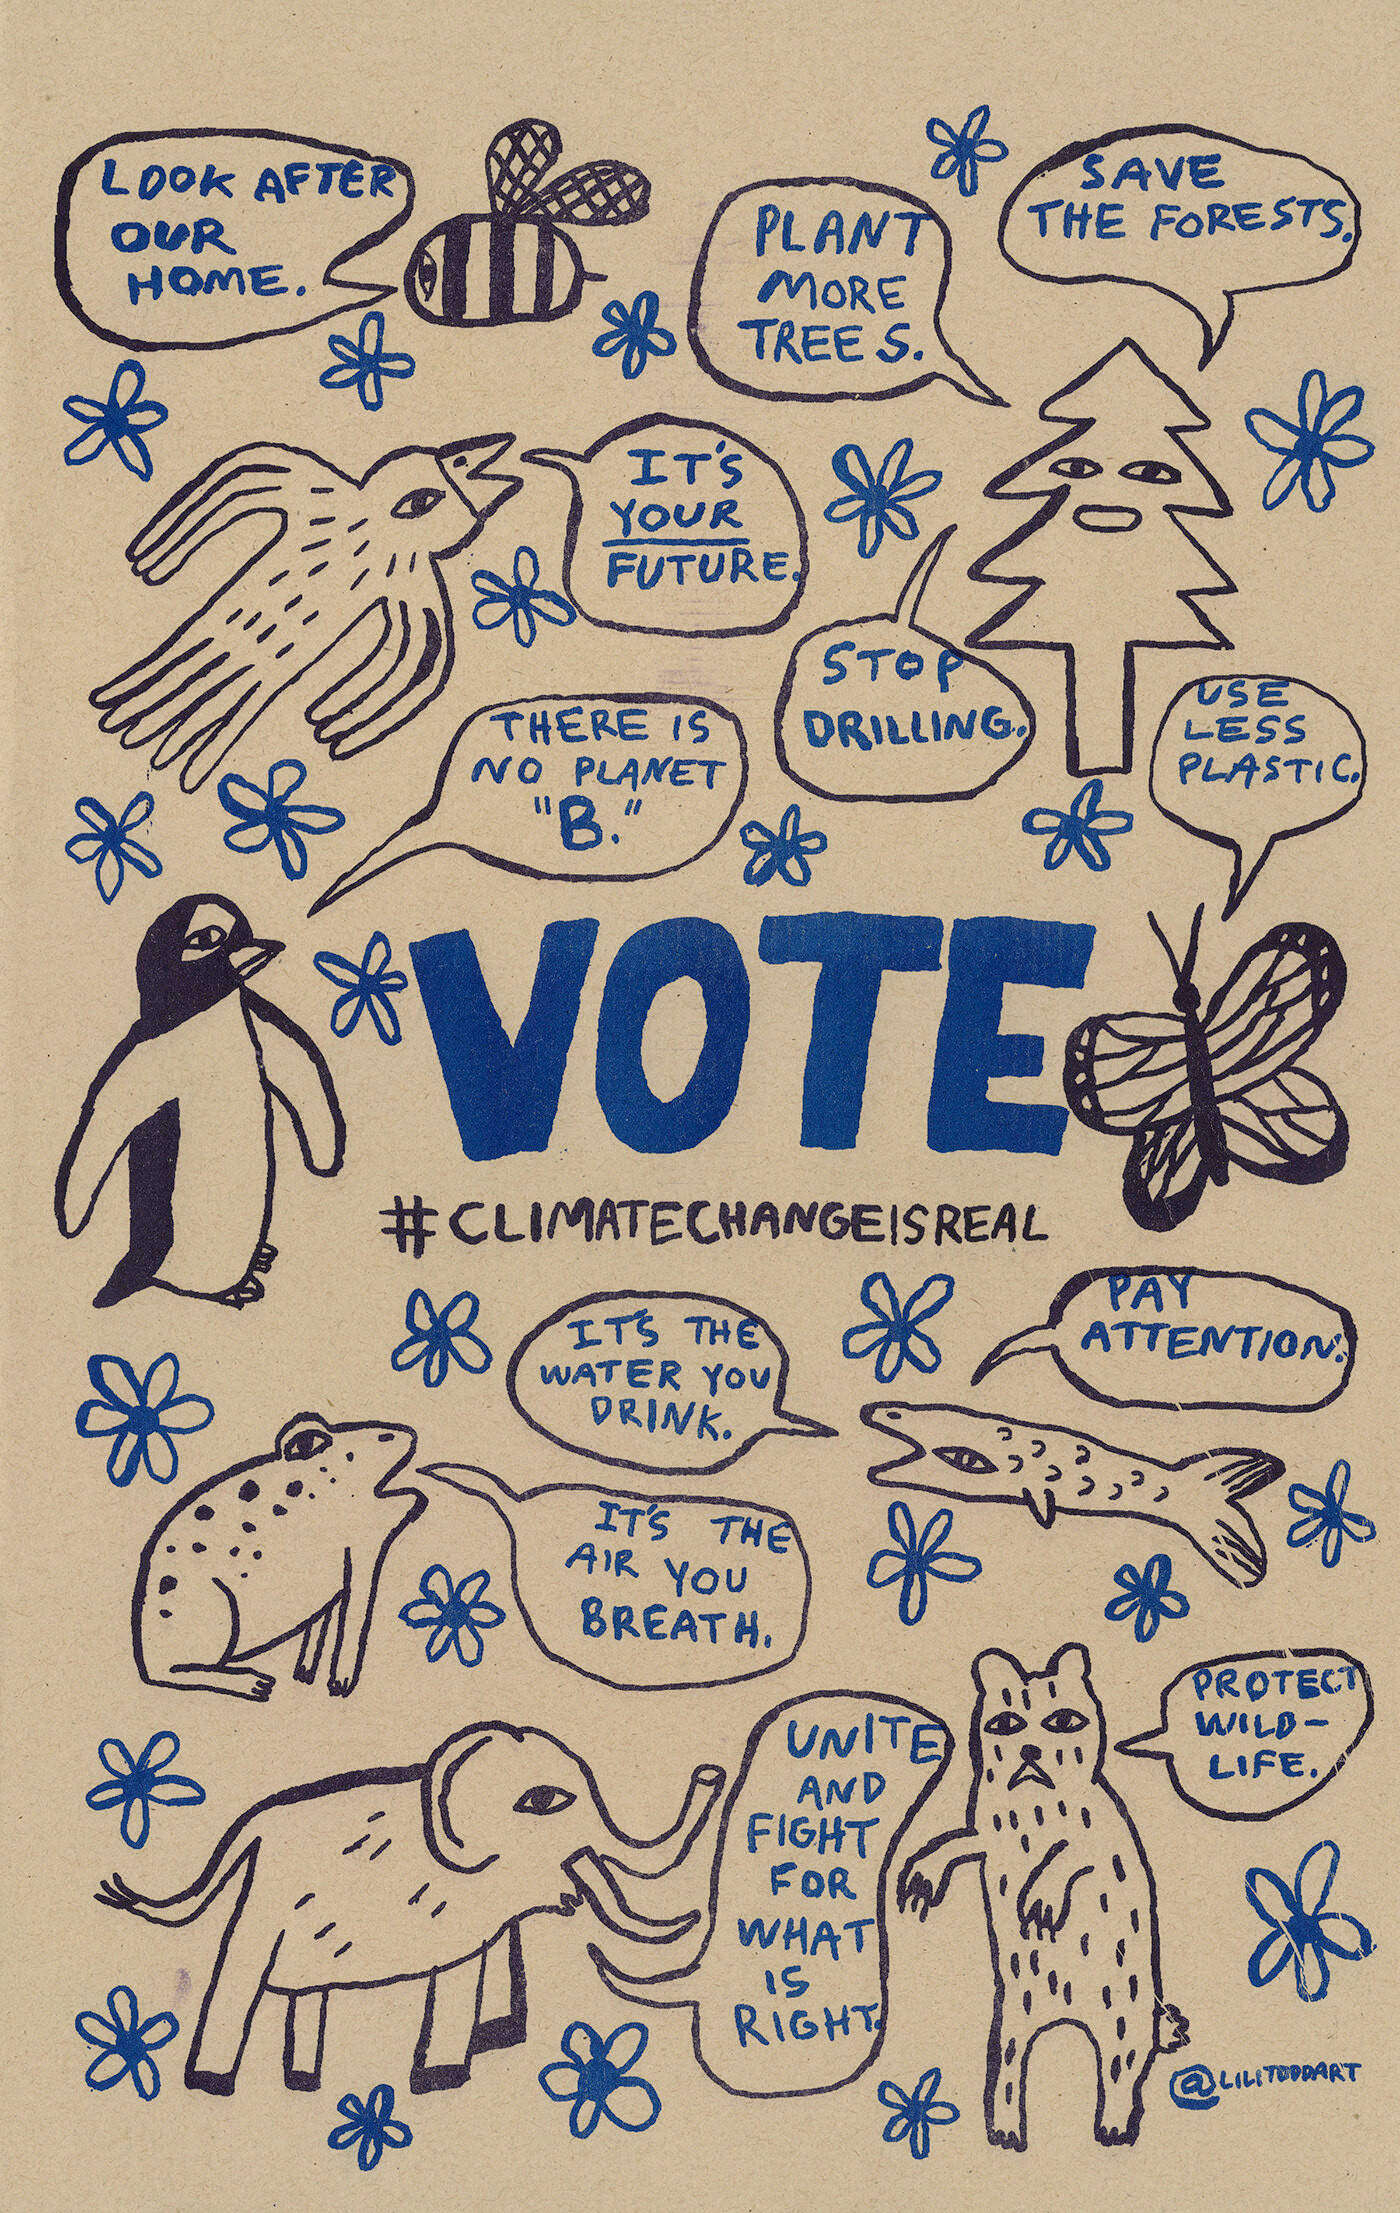 LOOK AFTER
OUR
HOME.
PLANT
MORE
TREES.
SAVE
THE FORESTS.
IT'S
YOUR
FUTURE.
STOP
DRILLING.
THERE IS
NO PLANET
"B."
USE
LESS
PLASTIC.
VOTE
#CLIMATECHANGEISREAL
IT'S THE
WATER YOU
DRINK.
PAY
ATTENTION.
IT'S THE
AIR YOU
BREATH.
UNITE
AND
FIGHT
FOR
WHAT
IS
RIGHT.
PROTECT
WILD-
LIFE.
@LILITODDART